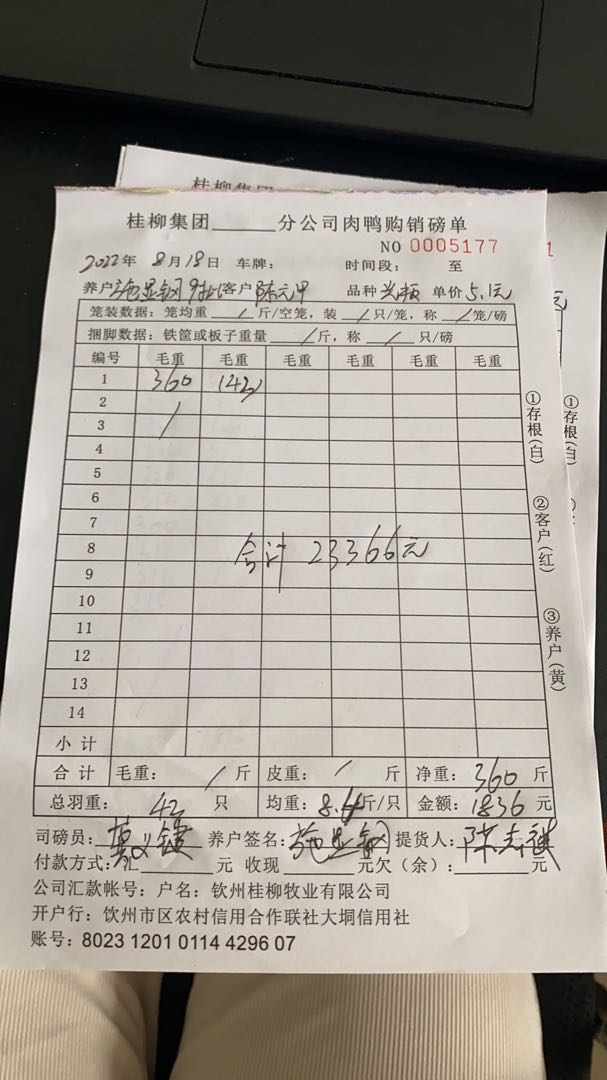 桂柳集团
桂柳集团______分公司肉鸭购销磅单
NO 0005177
2022年 8月18日 车牌: 时间段: 至
养户:施显钢9批 客户:陈元甲 品种 单价5.1元
笼装数据: 笼均重 / 斤/空笼, 装 / 只/笼, 称 / 笼/磅
捆脚数据: 铁筐或板子重量 / 斤, 称 / 只/磅
编号 毛重 毛重 毛重 毛重 毛重 毛重
1 360
2
3 /
4
5
6
7
8
9
10
11
12
13
14
合计 23366元
小计
合计 毛重: / 斤 皮重: / 斤 净重: 360 斤
总羽重: 42 只 均重: 斤/只 金额: 1836 元
司磅员: 养户签名: 施显钢 提货人:
付款方式: 汇______元 收现______元欠(余):______元
公司汇款帐号: 户名: 钦州桂柳牧业有限公司
开户行: 钦州市区农村信用合作联社大垌信用社
账号: 8023 1201 0114 4296 07
①存根(白)
②客户(红)
③养户(黄)
①存根(白)